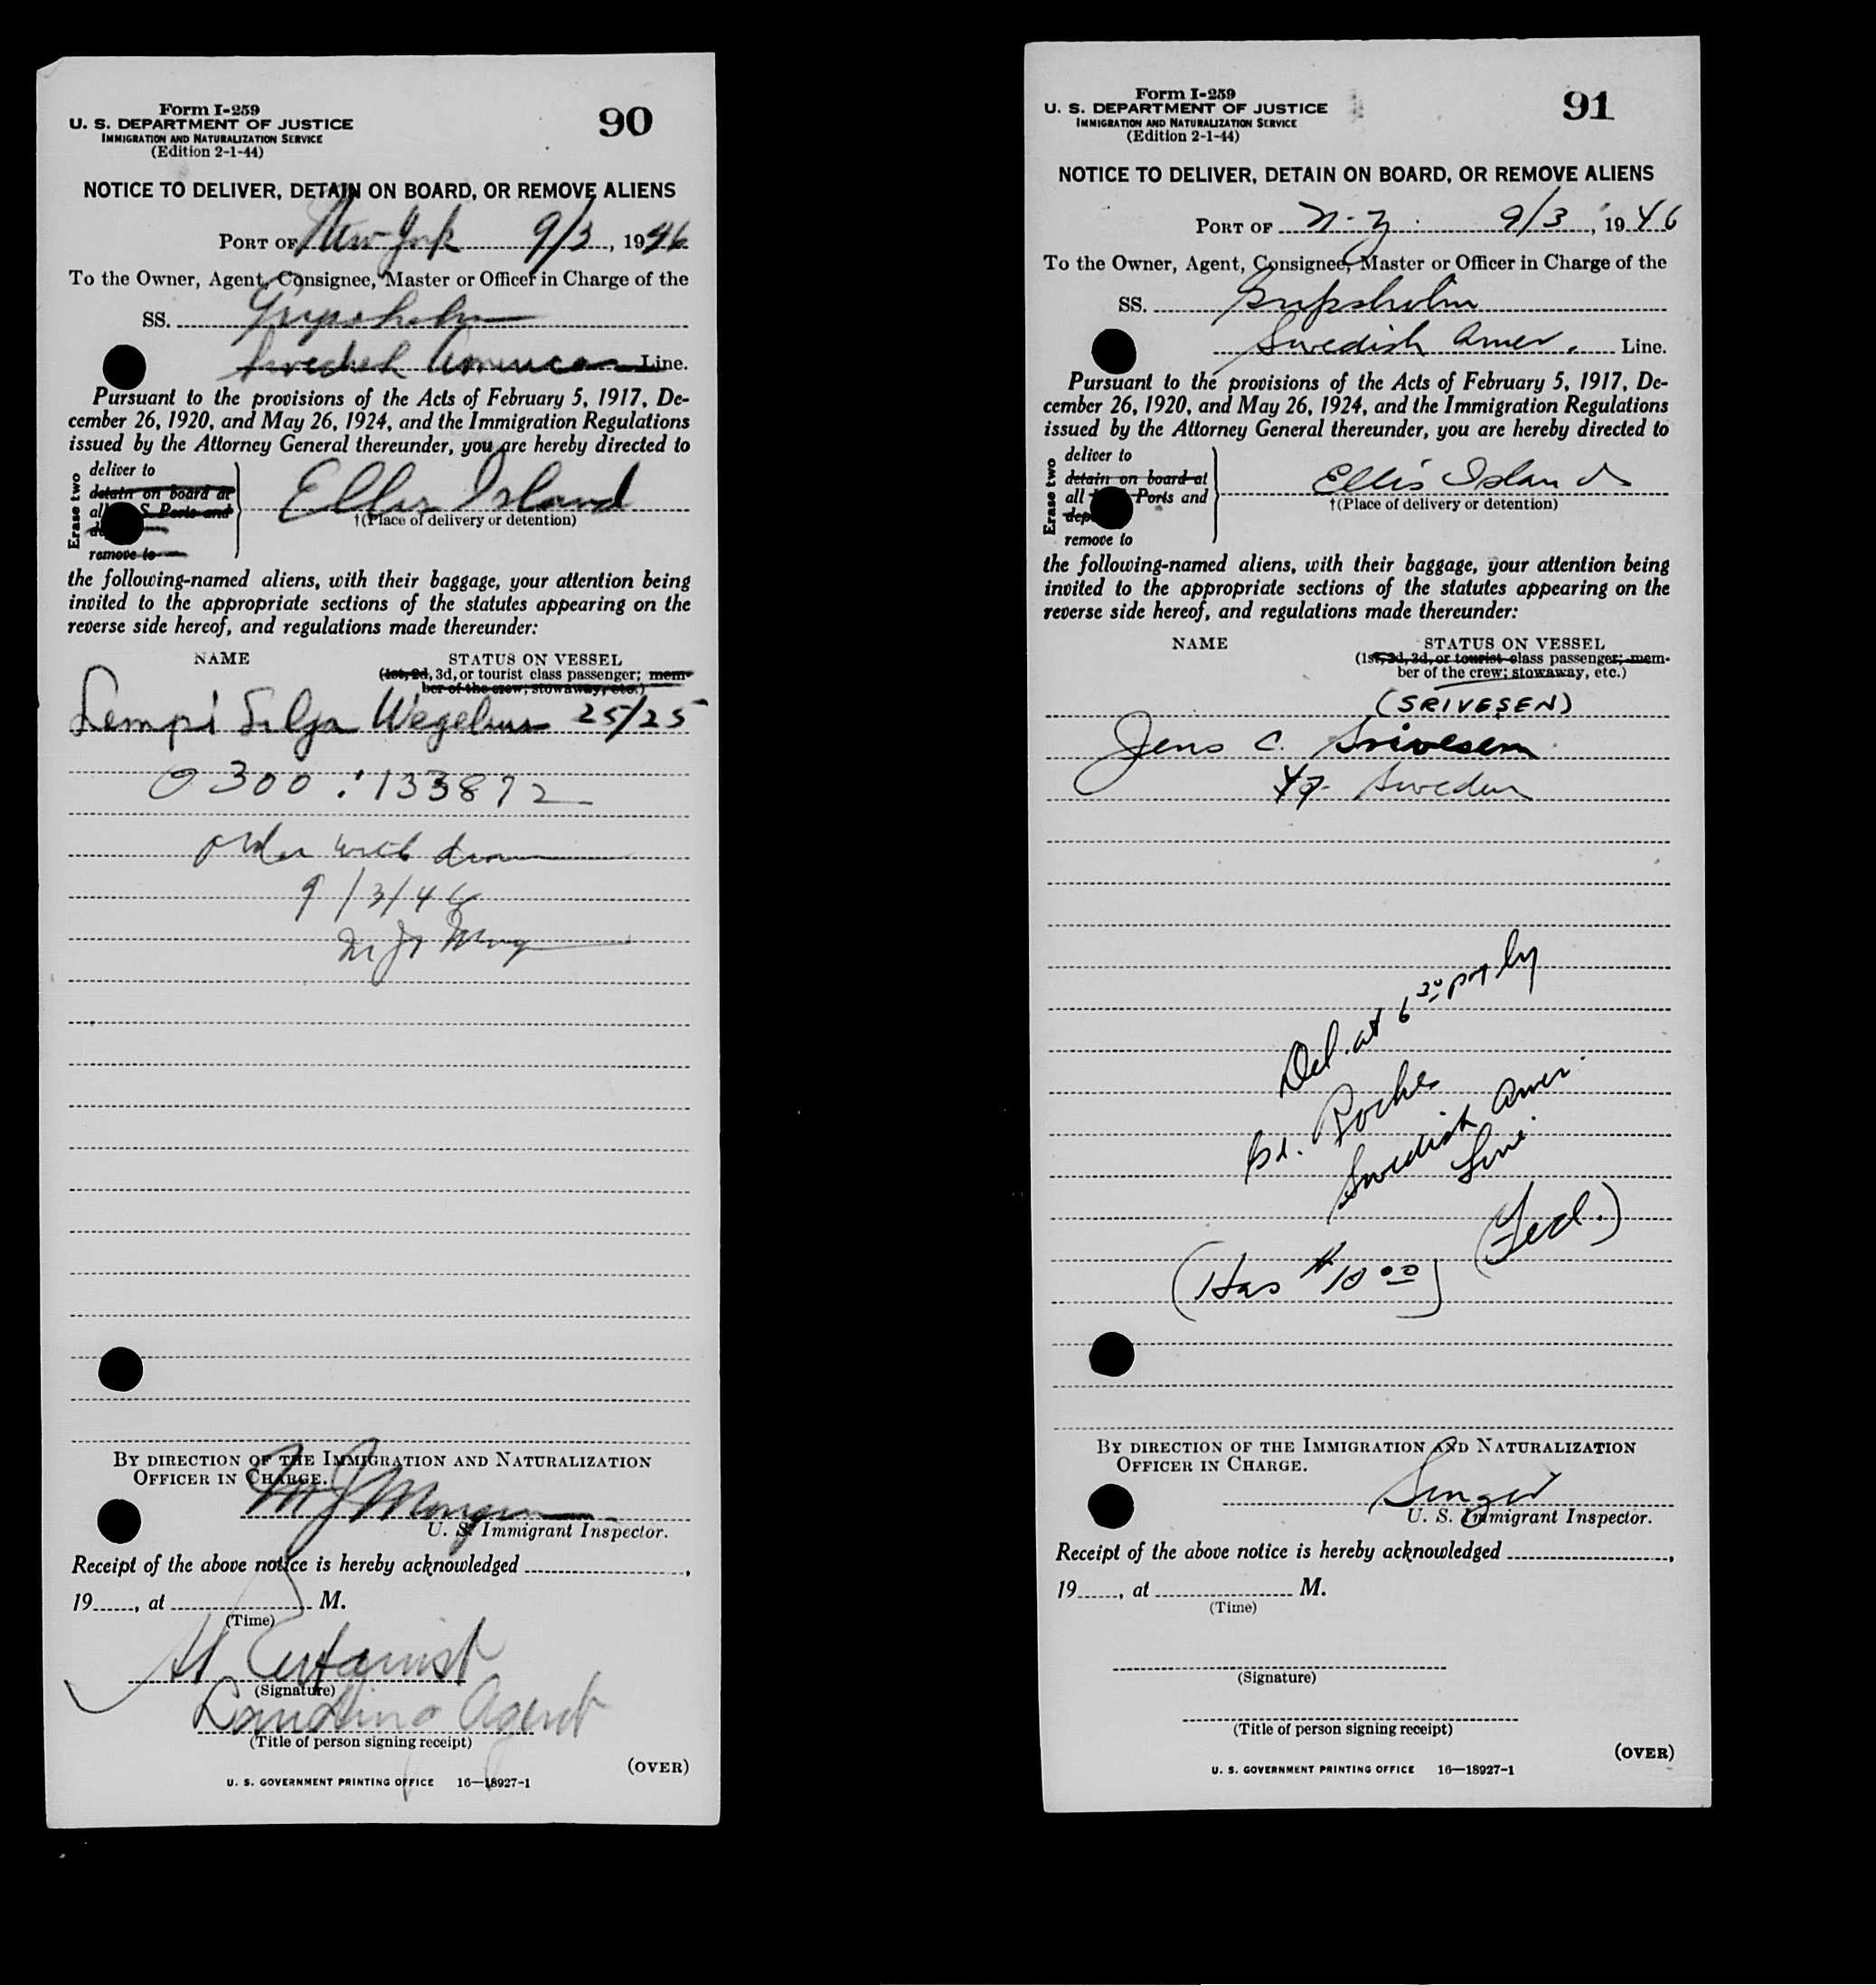 Form I-259
U. S. DEPARTMENT OF JUSTICE
IMMIGRATION AND NATURALIZATION SERVICE
(Edition 2-1-44)
90
NOTICE TO DELIVER, DETAIN ON BOARD, OR REMOVE ALIENS
PORT OF New York 9/3, 1946
To the Owner, Agent, Consignee, Master or Officer in Charge of the
SS. Gripsholm
Swedish American Line.
Pursuant to the provisions of the Acts of February 5, 1917, De-
cember 26, 1920, and May 26, 1924, and the Immigration Regulations
issued by the Attorney General thereunder, you are hereby directed to
Erase two
deliver to
detain on board at
all S. Ports and
remove to
Ellis Island
†(Place of delivery or detention)
the following-named aliens, with their baggage, your attention being
invited to the appropriate sections of the statutes appearing on the
reverse side hereof, and regulations made thereunder:
NAME STATUS ON VESSEL
(1st, 2d, 3d, or tourist class passenger; mem-
ber of the crew; stowaway, etc.)
Lempi Silja Wegelius 25/25
0300 : 133872
order with drawn
9/3/46
BY DIRECTION OF THE IMMIGRATION AND NATURALIZATION
OFFICER IN CHARGE.
M J
U. S. Immigrant Inspector.
Receipt of the above notice is hereby acknowledged ,
19 , at M.
(Time)
(Signature)
Landing Agent
(Title of person signing receipt)
(OVER)
U. S. GOVERNMENT PRINTING OFFICE 16—18927-1
Form I-259
U. S. DEPARTMENT OF JUSTICE
IMMIGRATION AND NATURALIZATION SERVICE
(Edition 2-1-44)
91
NOTICE TO DELIVER, DETAIN ON BOARD, OR REMOVE ALIENS
PORT OF N.Y. 9/3, 1946
To the Owner, Agent, Consignee, Master or Officer in Charge of the
SS. Gripsholm
Swedish Amer. Line.
Pursuant to the provisions of the Acts of February 5, 1917, De-
cember 26, 1920, and May 26, 1924, and the Immigration Regulations
issued by the Attorney General thereunder, you are hereby directed to
Erase two
deliver to
detain on board at
all Ports and
remove to
Ellis Island
†(Place of delivery or detention)
the following-named aliens, with their baggage, your attention being
invited to the appropriate sections of the statutes appearing on the
reverse side hereof, and regulations made thereunder:
NAME STATUS ON VESSEL
(1st, 2d, 3d, or tourist class passenger; mem-
ber of the crew; stowaway, etc.)
(SRIVESEN)
Jens C. Srivesen
Sweden
Del. at 6 30 PM by
Gd. Roche
Swedish Amer.
Line
(Fed.)
(Has $10 00)
BY DIRECTION OF THE IMMIGRATION AND NATURALIZATION
OFFICER IN CHARGE.
Singer
U. S. Immigrant Inspector.
Receipt of the above notice is hereby acknowledged ,
19 , at M.
(Time)
(Signature)
(Title of person signing receipt)
(OVER)
U. S. GOVERNMENT PRINTING OFFICE 16—18927-1